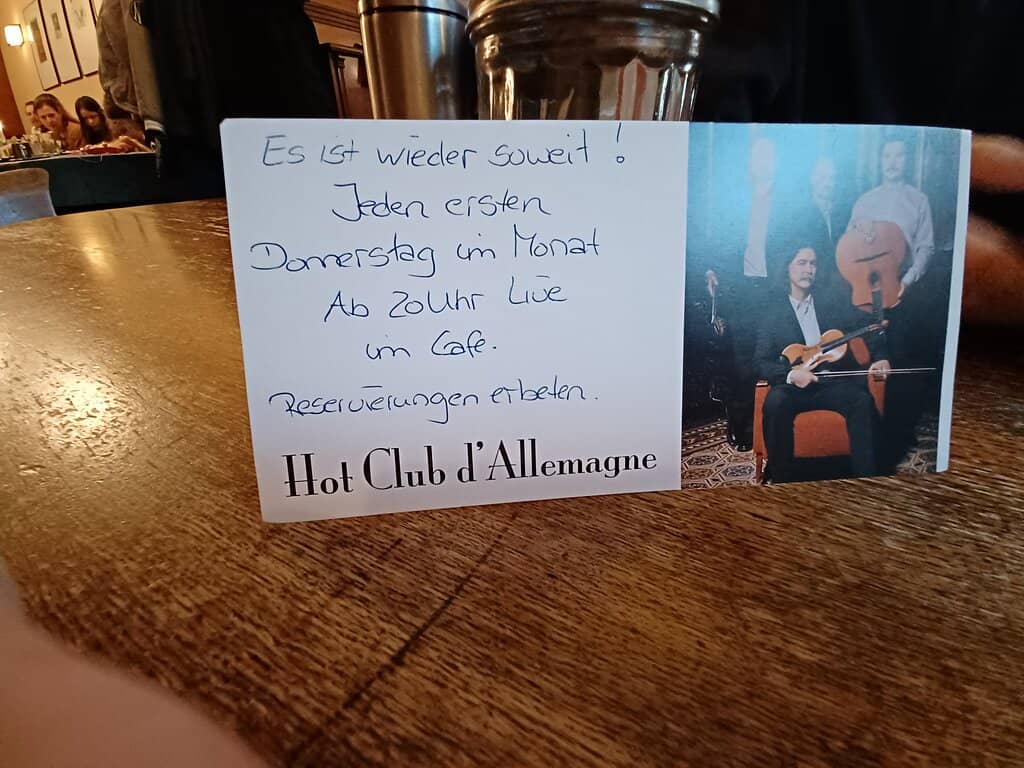 Es ist wieder soweit !
Jeden ersten
Donnerstag im Monat
Ab 20Uhr Live
im Cafe.
Reservierungen erbeten.
Hot Club d'Allemagne